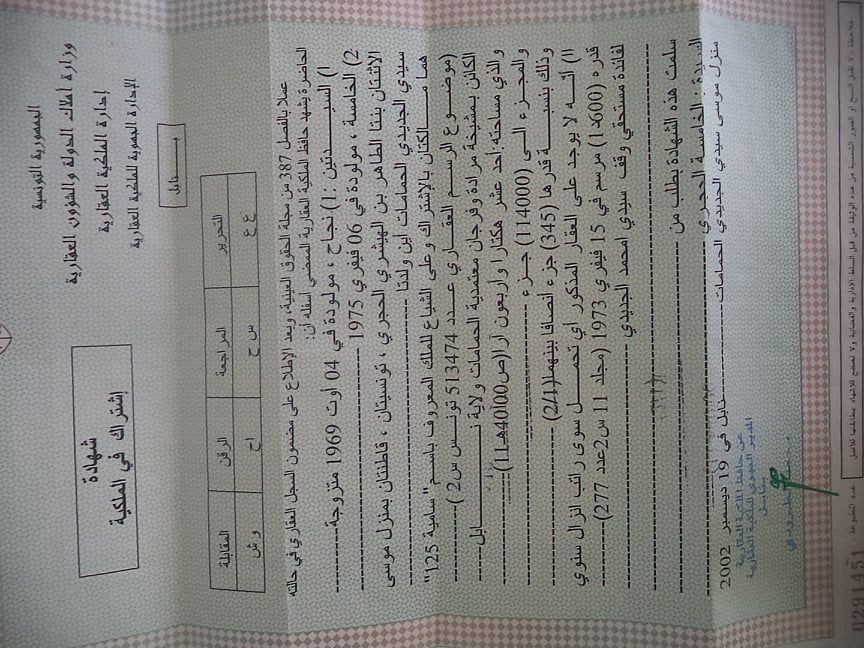 الجمهورية التونسية
وزارة املاك الدولة والشؤون العقارية
إدارة الملكية العقارية
الإدارة الجهوية للملكية العقارية
بنابل
شهادة
إشتراك في الملكية
التحرير المراجعة الرقن المقابلة
ع ع س ح اح و ش
عملا بالفصل 387 من مجلة الحقوق العينية، وبعد الإطلاع على مضمون السجل العقاري في حالته
الحاضرة يشهد حافظ الملكية العقارية الممضي أسفله أن:
ا) السيدتين :1) نجاح ، مولودة في 04 اوت 1969 متزوجة
2) الخامسة ، مولودة في 06 فيفري 1975
الاثنتان بنتا الطاهر بن الهيشري الحجري ، تونسيتان ، قاطنتان بمنزل موسى
سيدي الجديدي الحمامات اين ولدتا
هما مالكتان بالإشتراك وعلى الشياع للملك المعروف باسم" سامية 125"
(موضوع الرسم العقاري عدد 513474 تونس س2 )
الكائن بمشيخة مرادة وفرجان معتمدية الحمامات ولاية نابل
والذي مساحته:احد عشر هكتارا واربعون ارا(ص00ا40هـ11)
والمجزء الى (114000) جزء
وذلك بنسبة قدرها (345) جزء انصافا بينهما(2/1)
اا) انه لا يوجد على العقار المذكور اي تحمل سوى راتب انزال سنوي
قدره (600د1) مرسم في 15 فيفري 1973 (مجلد 11 س2عدد 277)
لفائدة مستحقي وقف سيدي امحمد الجديدي
سلمت هذه الشهادة بطلب من
السيدة : الخامسة الحجري
منزل موسى سيدي الجديدي الحمامات
نابل في 19 ديسمبر 2002
عن حافظ الملكية العقارية
المدير الجهوي للملكية العقارية
بنابل